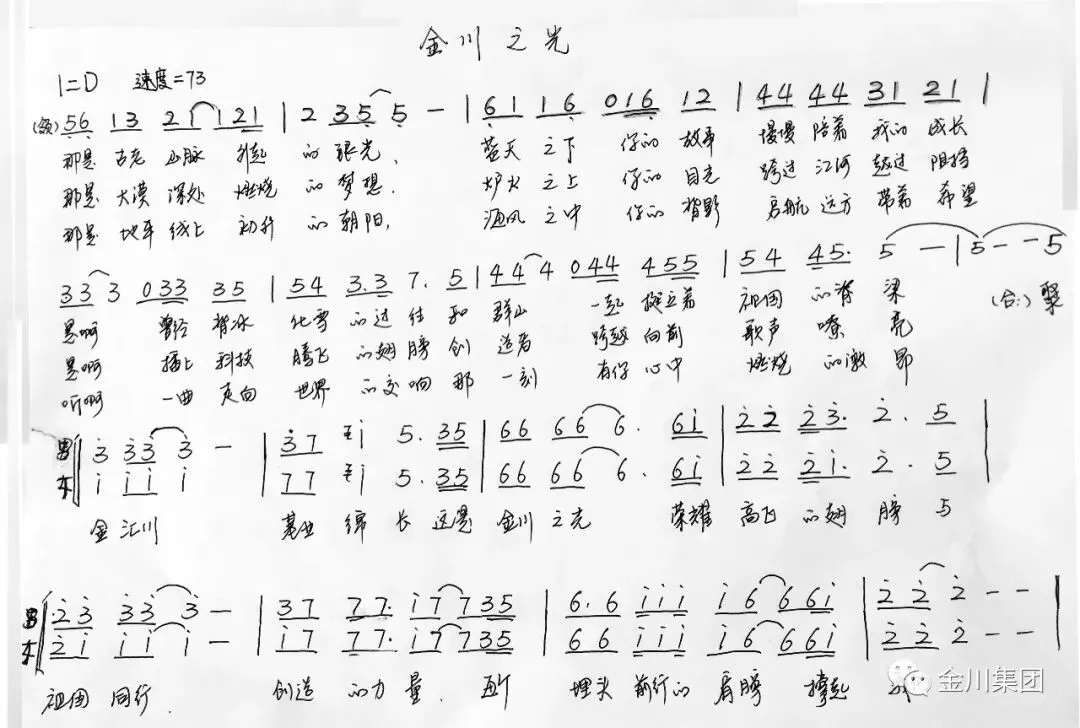 金川之光
1=D 速度=73
(领) 56 13 21 121 | 2 35 5 — | 61 16 016 12 | 44 44 31 21 |
那是 古老 山脉 升起 的 银光, 蓝天 之下 你的 故事 慢慢 陪着 我的 成长
那是 大漠 深处 燃烧 的 梦想. 炉火 之上 你的 目光 跨过 江河 越过 阻挡
那是 地平 线上 初升 的 朝阳, 海风 之中 你的 背影 启航 远方 带着 希望
33 3 033 35 | 54 3.3 7. 5 | 44 4 044 455 | 54 45. 5 — | 5 - - 5
是啊 曾经 背冰 化雪 的过 往 和 群山 一起 挺立着 祖国 的脊 梁 (合:) 聚
是啊 插上 科技 腾飞 的翅 膀 创 造着 跨越 向前 歌声 嘹 亮
听啊 一曲 走向 世界 的交 响 那 一刻 有你 心中 燃烧 的激 昂
男 3 33 3 — | 37 i 5. 35 | 66 66 6. 6i | 22 23. 2. 5 |
女 i ii i | 77 i 5. 35 | 66 66 6. 6i | 22 2i. 2. 5 |
金 汇川 基业 绵 长 这是 金川 之光 荣耀 高飞 的翅 膀 与
男 23 33 3 — | 37 77. i7 735 | 6.6 iii i6 66i | 22 2 - -
女 2i ii i — | i7 77. i7 735 | 66 iii i6 66i | 22 2 - -
祖国 同行. 创造 的力 量. 埋头 前行的 肩膀 捧起
金川集团